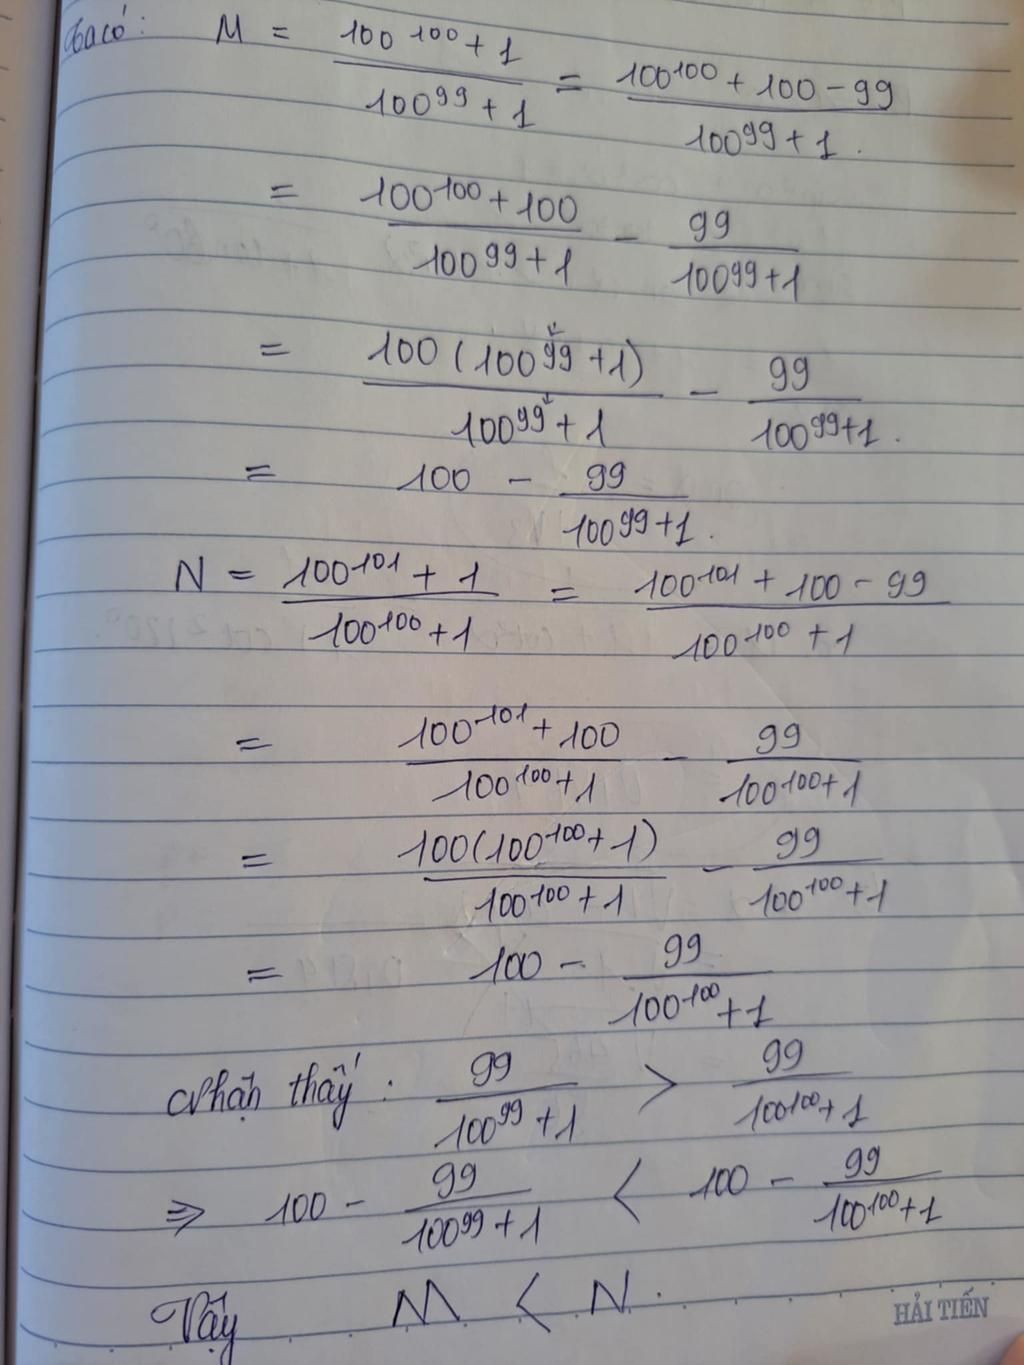 Ta có: M = \frac{100^{100} + 1}{100^{99} + 1} = \frac{100^{100} + 100 - 99}{100^{99} + 1}.
= \frac{100^{100} + 100}{100^{99} + 1} - \frac{99}{100^{99} + 1}
= \frac{100(100^{99} + 1)}{100^{99} + 1} - \frac{99}{100^{99} + 1}.
= 100 - \frac{99}{100^{99} + 1}.
N = \frac{100^{101} + 1}{100^{100} + 1} = \frac{100^{101} + 100 - 99}{100^{100} + 1}
= \frac{100^{101} + 100}{100^{100} + 1} - \frac{99}{100^{100} + 1}
= \frac{100(100^{100} + 1)}{100^{100} + 1} - \frac{99}{100^{100} + 1}
= 100 - \frac{99}{100^{100} + 1}
Nhận thấy: \frac{99}{100^{99} + 1} > \frac{99}{100^{100} + 1}
⇒ 100 - \frac{99}{100^{99} + 1} < 100 - \frac{99}{100^{100} + 1}
Vậy M < N.
HẢI TIẾN